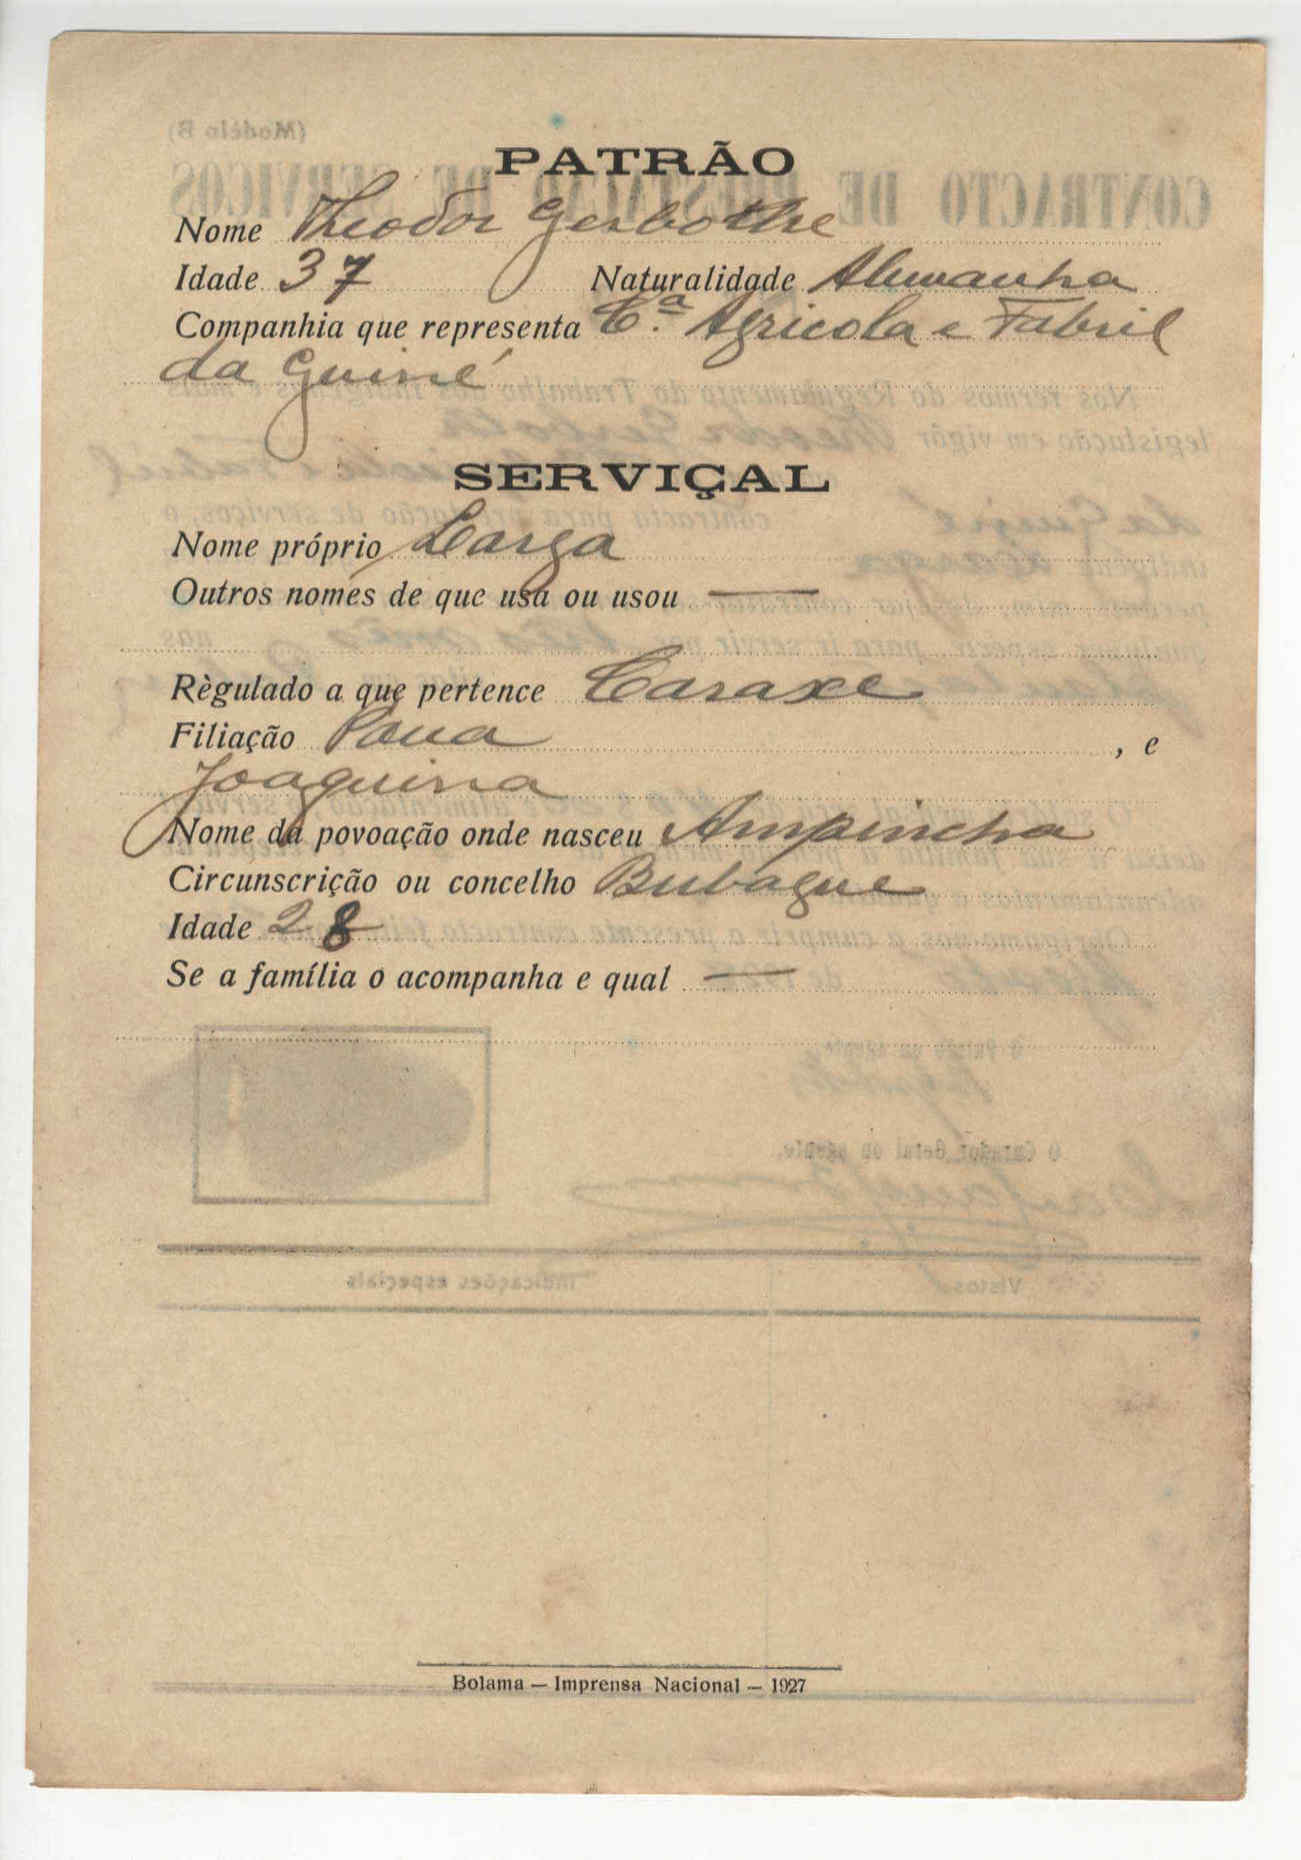 PATRÃO
Nome Theodor Gerbothe
Idade 37 Naturalidade Alemanha
Companhia que representa C.ª Agricola e Fabril
da Guiné
SERVIÇAL
Nome próprio Larga
Outros nomes de que usa ou usou —
Règulado a que pertence Caraxe
Filiação Paua , e
Joaquina
Nome da povoação onde nasceu Ampincha
Circunscrição ou concelho Bubaque
Idade 28
Se a família o acompanha e qual —
Bolama — Imprensa Nacional — 1927